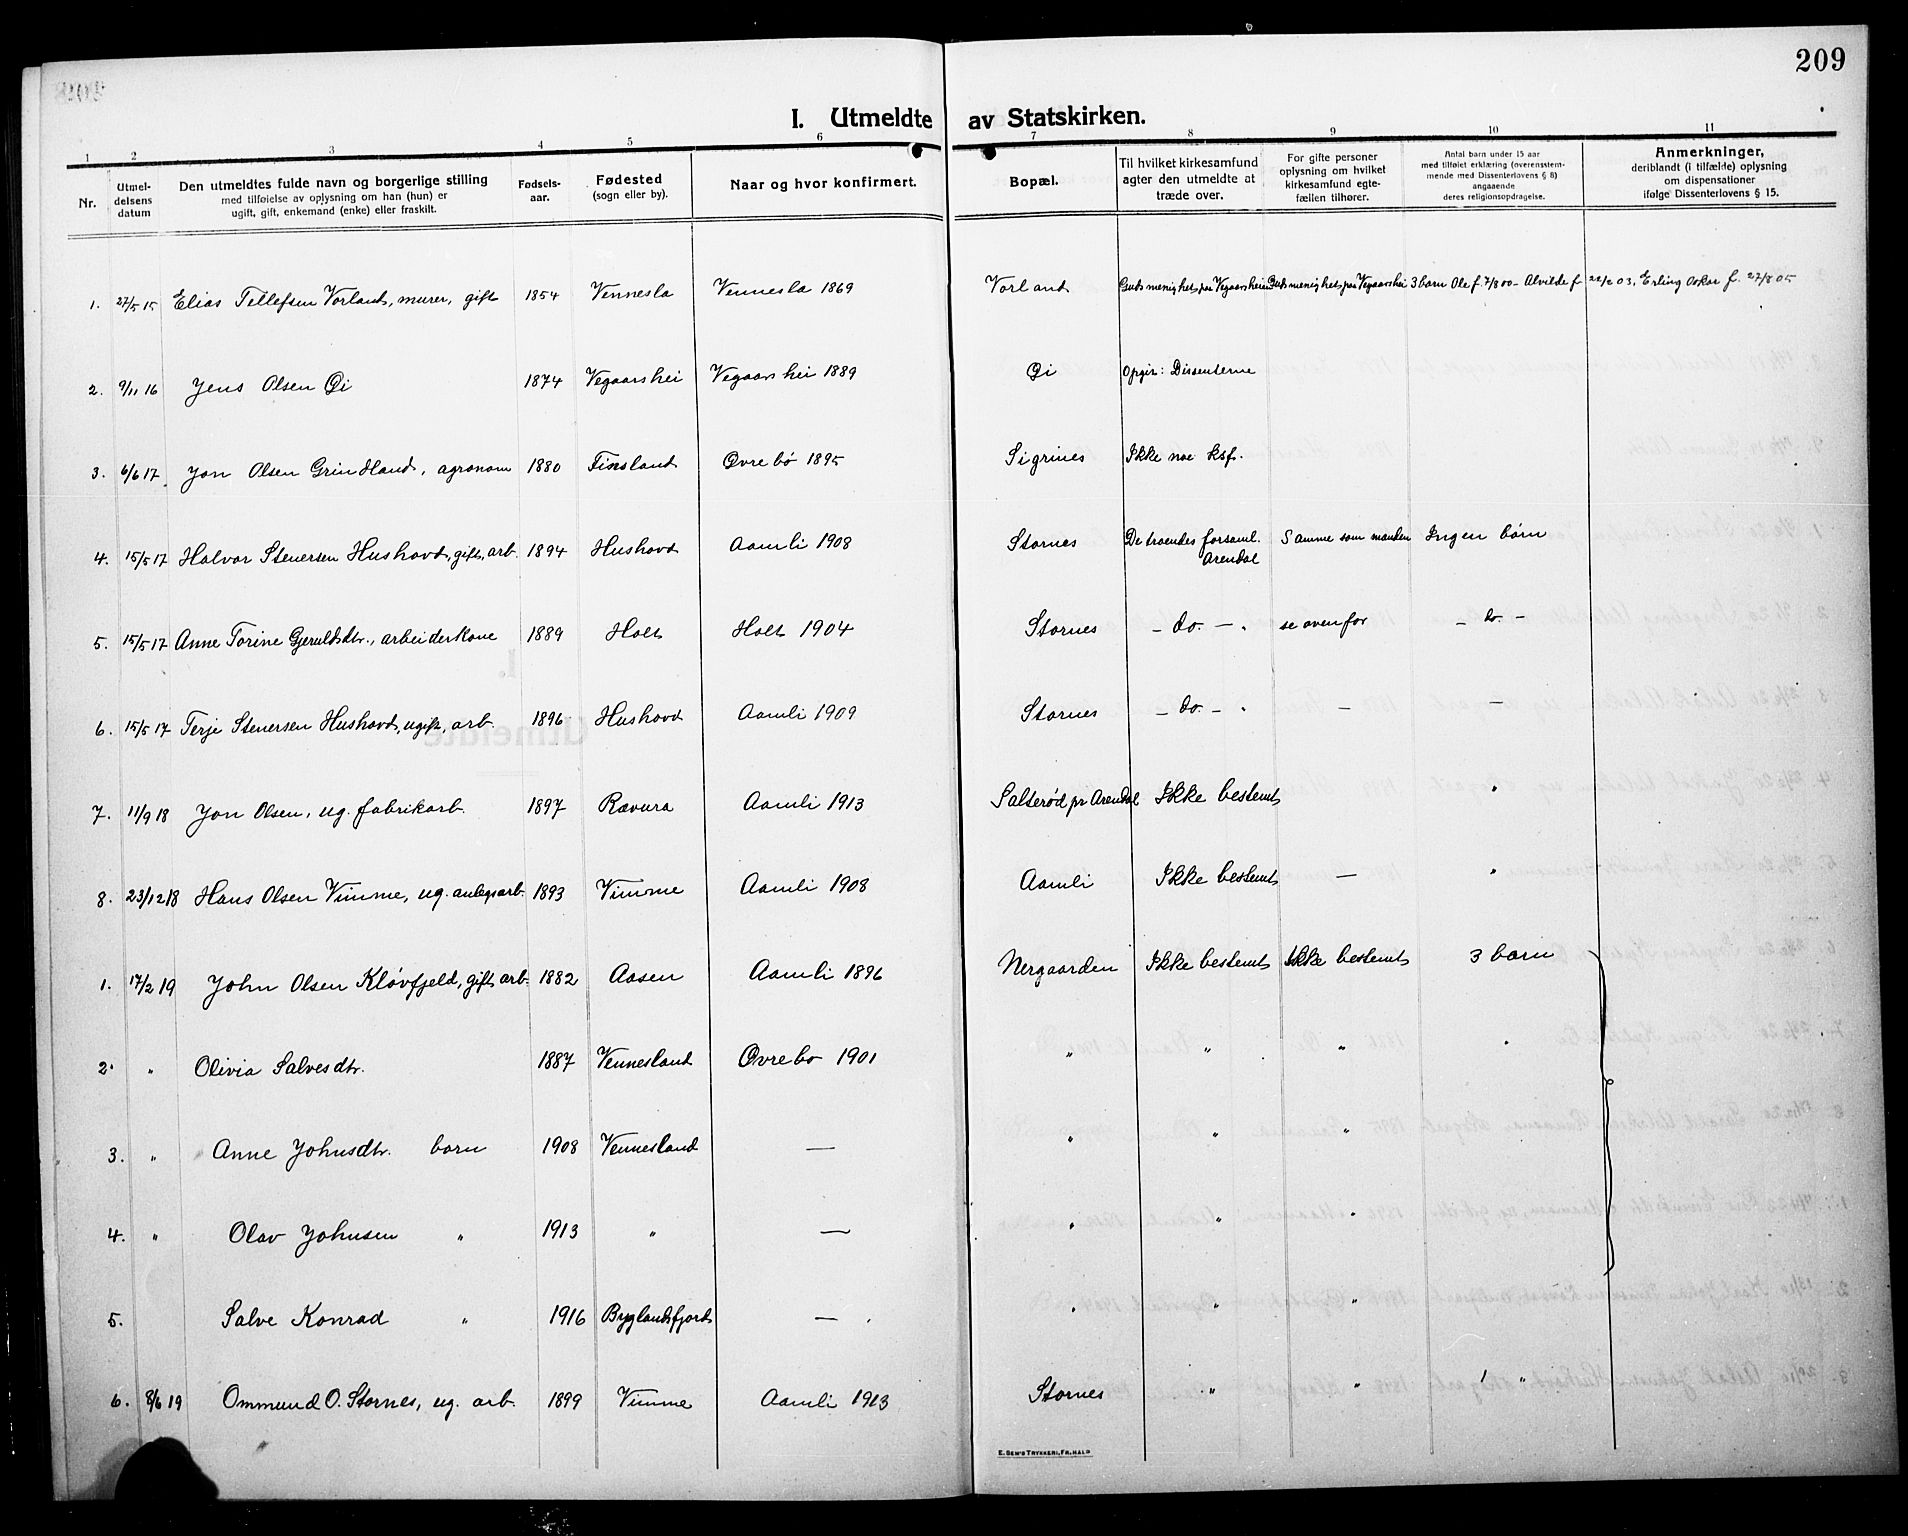 209
I. Utmeldte av Statskirken.
1 2 3 4 5 6 7 8 9 10 11
Nr.
Utmeldelsens datum
Den utmeldtes fulde navn og borgerlige stilling
med tilføielse av oplysning om han (hun) er
ugift, gift, enkemand (enke) eller fraskilt.
Fødselsaar.
Fødested
(sogn eller by).
Naar og hvor konfirmert.
Bopæl.
Til hvilket kirkesamfund
agter den utmeldte at
træde over.
For gifte personer
oplysning om hvilket
kirkesamfund egtefællen tilhører.
Antal barn under 15 aar
med tilføiet erklæring (overensstemmende med Dissenterlovens § 8)
angaaende
deres religionsopdragelse.
Anmerkninger,
deriblandt (i tilfælde) oplysning
om dispensationer
ifølge Dissenterlovens § 15.
1. 27/5 15 Elias Tellefsen Vorland, murer, gift 1854 Vennesla Vennesla 1869 Vorland Guds menighet paa Vegaarshei Guds menighet paa Vegaarshei 3 barn Ole f. 7/8 00 - Alvilde f. 22/2 03, Erling Oskar f. 27/8 05
2. 9/11 16 Jens Olsen Øi 1874 Vegaarshei Vegaarshei 1889 Øi Opgir: Dissenterne
3. 6/6 17 Jon Olsen Grindland, agronom 1880 Finsland Øvrebø 1895 Sigrines Ikke noe ksf.
4. 15/5 17 Halvor Stenersen Hushovd, gift, arb. 1894 Hushovd Aamli 1908 Stornes De troendes forsaml. Arendal Samme som manden Ingen børn
5. 15/5 17 Anne Torine Gjeruldsdtr., arbeiderkone 1889 Holt Holt 1904 Stornes - do. - se ovenfor - do. -
6. 15/5 17 Terje Stenersen Hushovd, ugift, arb. 1896 Hushovd Aamli 1909 Stornes - do. - — —
7. 11/9 18 Jon Olsen, ug. fabrikarb. 1897 Rævura Aamli 1913 Salterød pr Arendal Ikke bestemt "
8. 23/12 18 Hans Olsen Vimme, ug. anlegsarb. 1893 Vimme Aamli 1908 Aamli Ikke bestemt — "
1. 17/2 19 John Olsen Kløvfjeld, gift arb. 1882 Aasen Aamli 1896 Nergaarden Ikke bestemt Ikke bestemt 3 barn
2. " Olivia Salvesdtr. 1887 Vennesland Øvrebo 1901 " " " "
3. " Anne Johnsdtr. barn 1908 Vennesland — " " "
4. " Olav Johnsen " 1913 " — " " "
5. Salve Konrad " 1916 Byglandsfjord — " " "
6. 8/6 19 Ommund O. Stornes, ug. arb. 1899 Vimme Aamli 1913 Stornes " " "
E. SEM'S TRYKKERI, FR.HALD